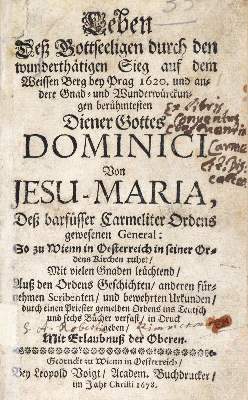 Leben
Deß Gottseeligen durch den
wunderthätigen Sieg auf dem
Weissen Berg bey Prag 1620. und an-
dere Gnad- und Wunderwürckun-
gen berühmtesten
Diener Gottes
DOMINICI
Von
JESU-MARIA,
Deß barfüsser Carmeliter Ordens
gewesenen General:
So zu Wienn in Oesterreich in seiner Or-
dens Kirchen ruhet/
Mit vielen Gnaden leüchtend/
Auß den Ordens Geschichten/ anderen für-
nehmen Scribenten/ und bewehrten Urkunden/
durch einen Priester gemelden Ordens ins Teutsch
und sechs Bücher verfast/ in Druck
geben/
Mit Erlaubnuß der Oberen.
Gedruckt zu Wienn in Oesterreich/
Bey Leopold Voigt/ Academ. Buchdrucker/
im Jahr Christi 1678.
Ex libris
Conventus